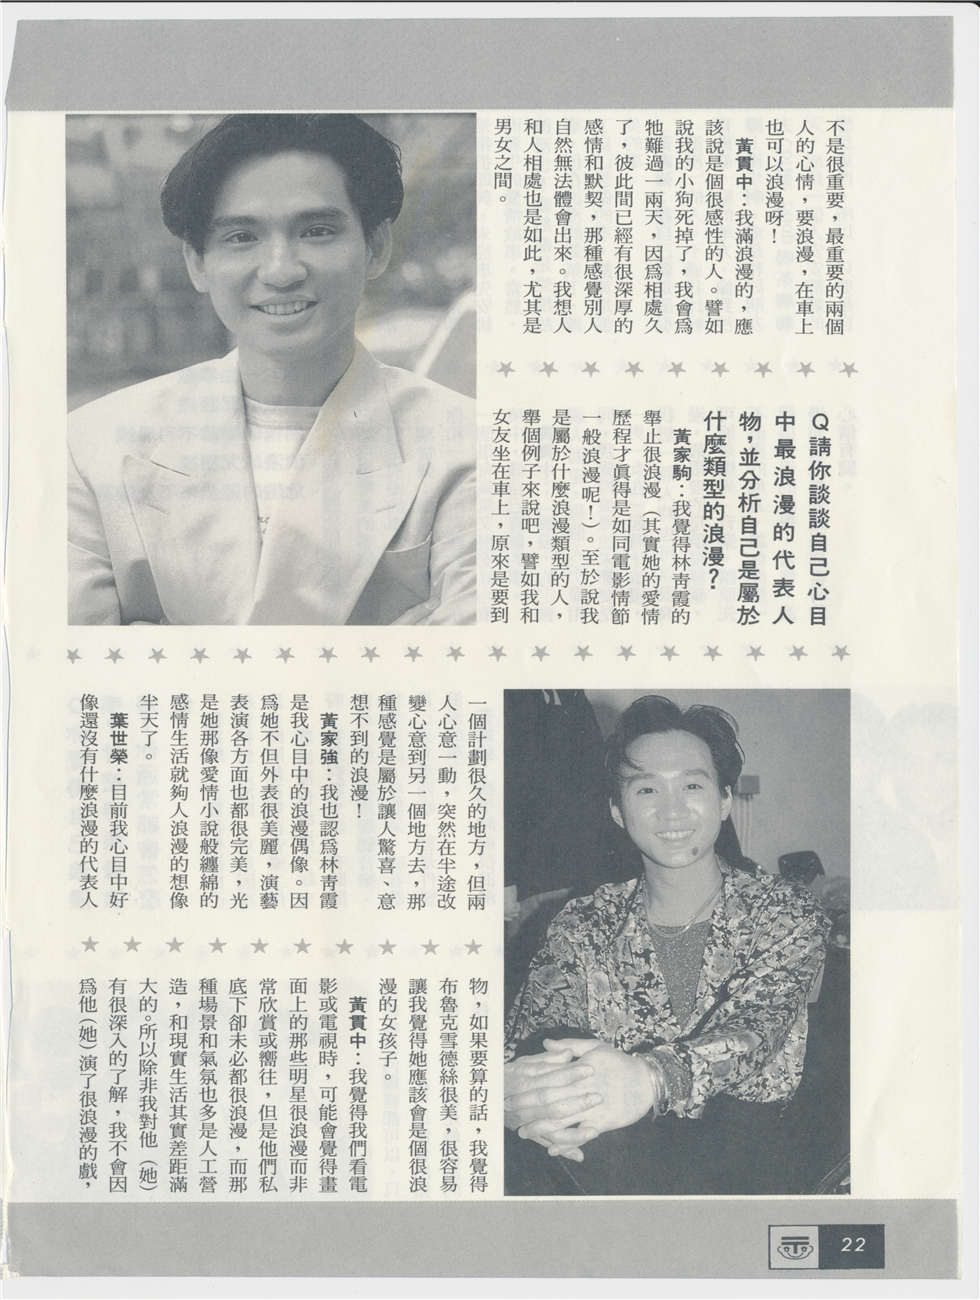 不是很重要，最重要的兩個
人的心情，要浪漫，在車上
也可以浪漫呀！
黃貫中：我滿浪漫的，應
該說是個很感性的人。譬如
說我的小狗死掉了，我會爲
牠難過一兩天，因爲相處久
了，彼此間已經有很深厚的
感情和默契，那種感覺別人
自然無法體會出來。我想人
和人相處也是如此，尤其是
男女之間。
Q請你談談自己心目
中最浪漫的代表人
物，並分析自己是屬於
什麼類型的浪漫？
黃家駒：我覺得林青霞的
舉止很浪漫（其實她的愛情
歷程才眞得是如同電影情節
一般浪漫呢！）。至於說我
是屬於什麼浪漫類型的人，
舉個例子來說吧，譬如我和
女友坐在車上，原來是要到
一個計劃很久的地方，但兩
人心意一動，突然在半途改
變心意到另一個地方去，那
種感覺是屬於讓人驚喜、意
想不到的浪漫！
黃家強：我也認爲林青霞
是我心目中的浪漫偶像。因
爲她不但外表很美麗，演藝
表演各方面也都很完美，光
是她那像愛情小說般纏綿的
感情生活就夠人浪漫的想像
半天了。
葉世榮：目前我心目中好
像還沒有什麼浪漫的代表人
物，如果要算的話，我覺得
布魯克雪德絲很美，很容易
讓我覺得她應該會是個很浪
漫的女孩子。
黃貫中：我覺得我們看電
影或電視時，可能會覺得畫
面上的那些明星很浪漫而非
常欣賞或嚮往，但是他們私
底下卻未必都很浪漫，而那
種場景和氣氛也多是人工營
造，和現實生活其實差距滿
大的。所以除非我對他（她）
有很深入的了解，我不會因
爲他（她）演了很浪漫的戲，
22